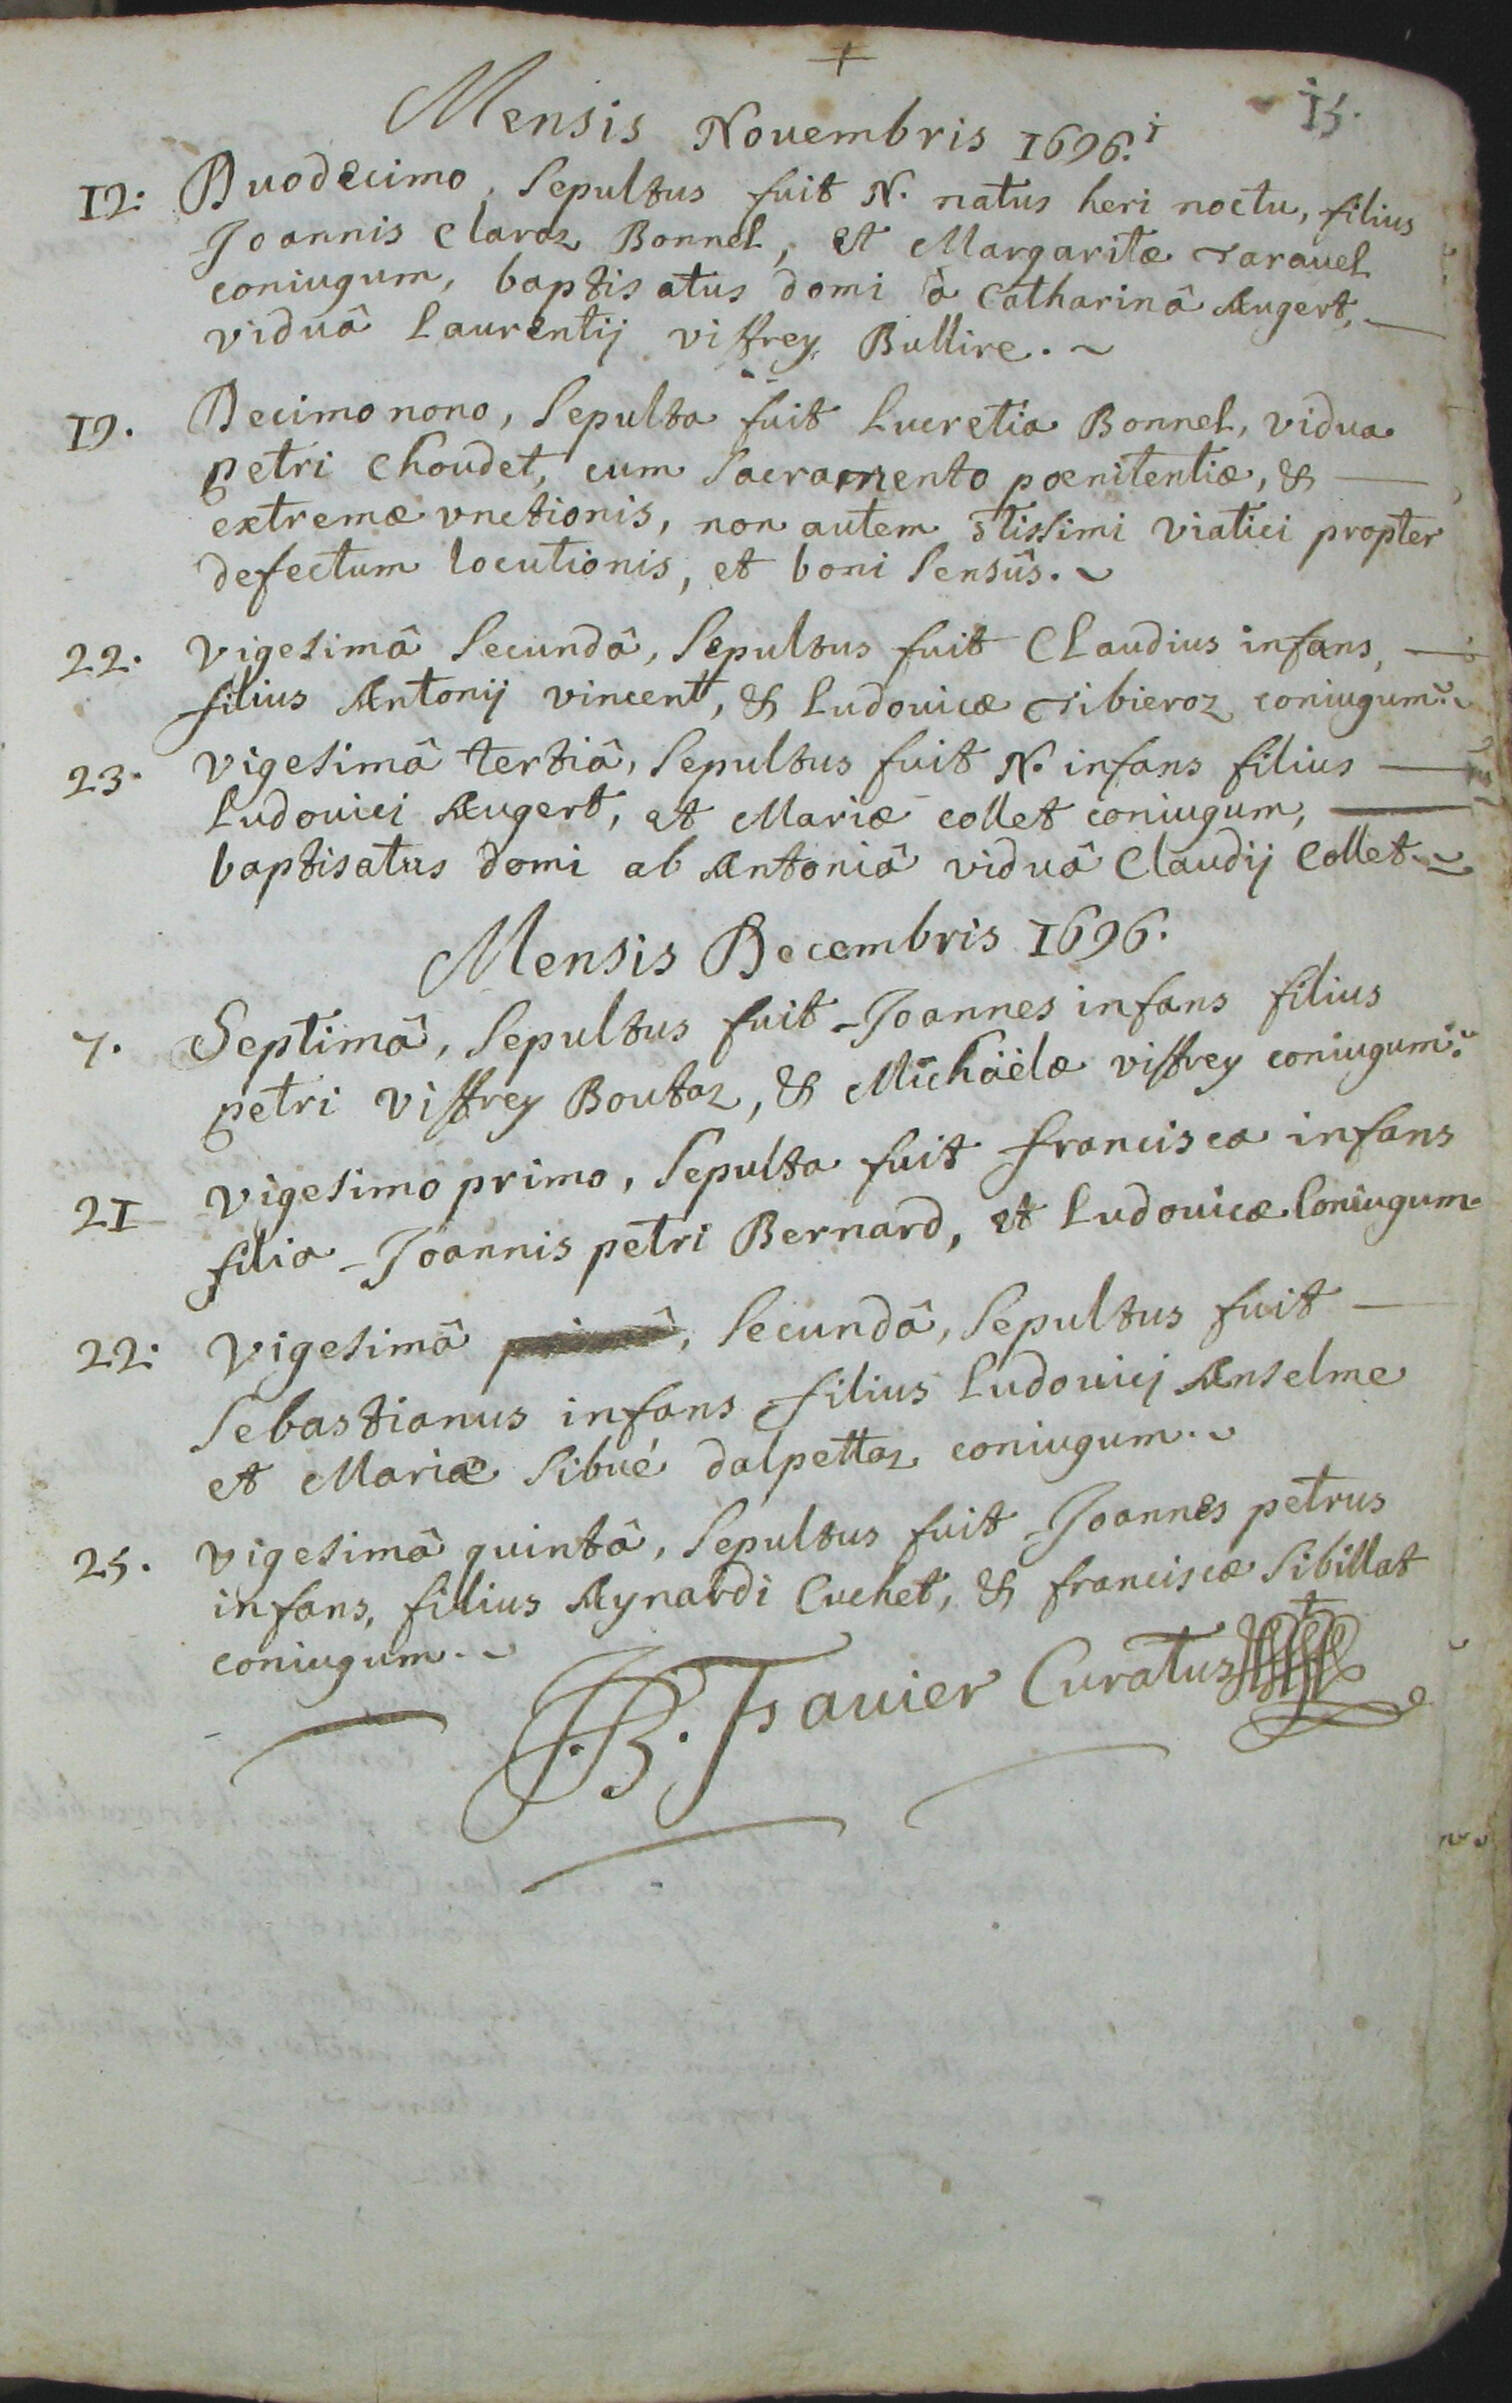 15.
Mensis Nouembris 1696.
12. Duodecimo, Sepultus fuit N. natus heri noctu, filius
Joannis Claraz Bonnel, et Margaritæ Tarauel
coniugum, baptisatus domi à Catharinâ Augert,
viduâ Laurentij viffrey Bullire.
19. Decimo nono, Sepulta fuit Lucretia Bonnel, vidua
petri Choudet, cum Sacramento pœnitentiæ, &
extremæ vnctionis, non autem Stissimi Viatici propter
defectum locutionis, et boni Sensûs.
22. Vigesimâ Secundâ, Sepultus fuit Claudius infans,
filius Antonij vincent, & Ludouicæ Tibieroz coniugum.
23. Vigesimâ tertiâ, Sepultus fuit N. infans filius
Ludouici Augert, et Mariæ collet coniugum,
baptisatus domi ab Antoniâ viduâ Claudij Collet.
Mensis Decembris 1696.
7. Septimâ, Sepultus fuit Joannes infans filius
petri Viffrey Boutaz, & Michäelæ viffrey coniugum.
21 Vigesimo primo, Sepulta fuit francisca infans
filia Joannis petri Bernard, et Ludouicæ Coniugum.
22. Vigesimâ Secundâ, Sepultus fuit
Sebastianus infans filius Ludouicj Anselme
et Mariæ Sibué dalpettaz coniugum.
25. Vigesimâ quintâ, Sepultus fuit Joannes petrus
infans, filius Aynardi Cuchet, & franciscæ Sibillat
coniugum.
J.B. Frauier Curatus